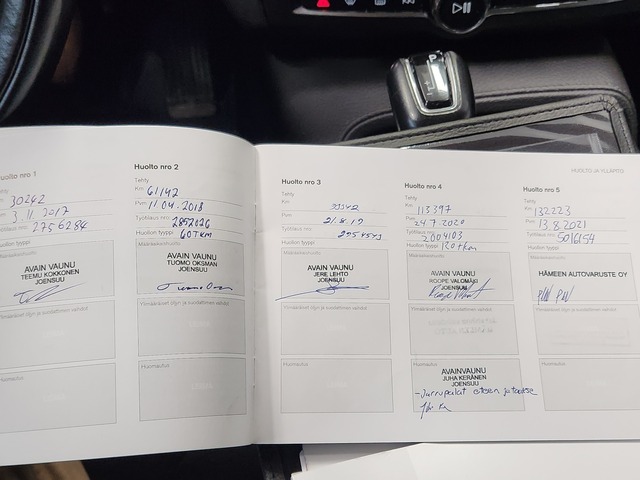 HUOLTO JA YLLÄPITO
Huolto nro 1
Tehty
30242
Pvm 3.11.2017
Työtilaus nro: 2756284
Huollon tyyppi
AVAIN VAUNU
TEEMU KOKKONEN
JOENSUU
Ylimääräiset öljyn ja suodattimen vaihdot
Huomautus
Huolto nro 2
Tehty
Km 61142
Pvm 11.04.2018
Työtilaus nro: 2852026
Huollon tyyppi 60TKM
AVAIN VAUNU
TUOMO OKSMAN
JOENSUU
Ylimääräiset öljyn ja suodattimen vaihdot
Huomautus
Huolto nro 3
Tehty
Km
Pvm 21.8.19
Työtilaus nro:
Huollon tyyppi
AVAIN VAUNU
JERE LEHTO
JOENSUU
Ylimääräiset öljyn ja suodattimen vaihdot
Huomautus
Huolto nro 4
Tehty
Km 113397
Pvm 24.7.2020
Työtilaus nro: 2004103
Huollon tyyppi 120tkm
AVAIN VAUNU
ROOPE VALOMÄKI
JOENSUU
Ylimääräiset öljyn ja suodattimen vaihdot
AVAINVAUNU
JUHA KERÄNEN
JOENSUU
-Jarrupalat eteen ja taakse
Huolto nro 5
Tehty
Km 132223
Pvm 13.8.2021
Työtilaus nro: 5016154
Huollon tyyppi
HÄMEEN AUTOVARUSTE OY
Ylimääräiset öljyn ja suodattimen vaihdot
Huomautus